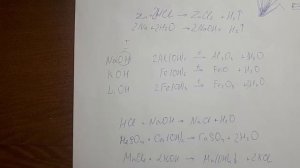 Zn + 2HCl → ZnCl₂ + H₂↑
2Na + 2H₂O → 2NaOH + H₂↑
NaOH 2Al(OH)₃ → Al₂O₃ + 3H₂O
KOH Fe(OH)₂ → FeO + H₂O
LiOH 2Fe(OH)₃ → Fe₂O₃ + 3H₂O
HCl + NaOH → NaCl + H₂O
H₂SO₄ + Ca(OH)₂ → CaSO₄ + 2H₂O
MnCl₂ + 2KOH → Mn(OH)₂ + 2KCl